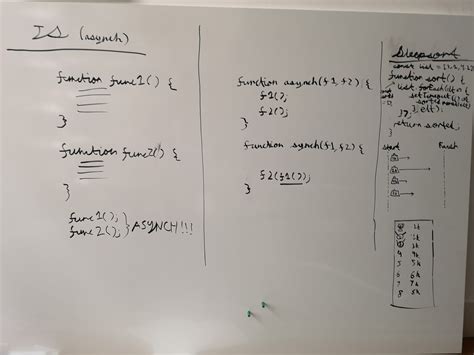 JS (asynch)
function func1() {
}
function func2() {
}
func1();
func2(); } ASYNCH!!!
function asynch(f1, f2) {
f1();
f2();
}
function synch(f1, f2) {
f2(f1());
}
Sleepsort
const list =
function sort() {
list.forEach(
setTimeout(
return sorted
Start Finish
4 9h
5 5h
6 6h
7 7h
8 8h